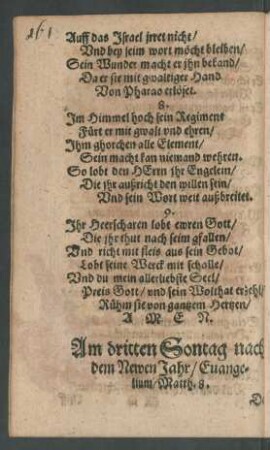 261
Auff das Israel jrret nicht/
Vnd bey seim wort möcht bleiben/
Sein Wunder macht er jhn bekand/
Da er sie mit gwaltiger Hand
Von Pharao erlöset.
8.
Im Himmel hoch sein Regiment
Fürt er mit gwalt vnd ehren/
Ihm ghorchen alle Element/
Sein macht kan niemand wehren.
So lobt den HErrn jhr Engelein/
Die jhr außricht den willen sein/
Vnd sein Wort weit außbreitet.
9.
Ihr Heerscharen lobt ewren Gott/
Die jhr thut nach seim gfallen/
Vnd richt mit fleis aus sein Gebot/
Lobt seine Werck mit schalle/
Vnd du mein allerliebste Seel/
Preis Gott/ vnd sein Wolthat erzehl/
Rühm sie von gantzem Hertzen/
A M E N.
Am dritten Sontag nach
dem Newen Jahr/ Euange-
lium/ Matth. 8.